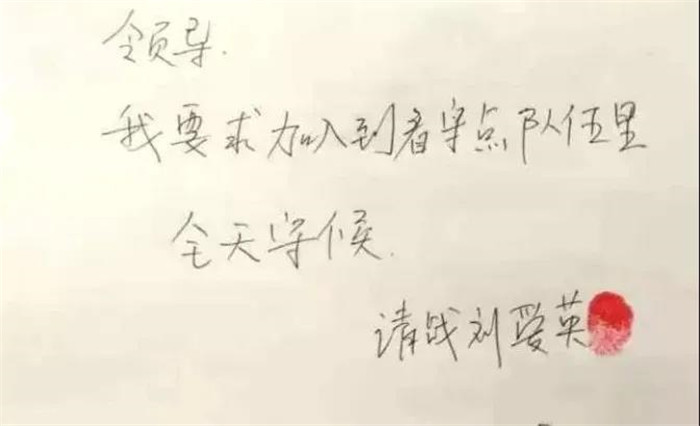 领导.
我要求加入到看守点队伍里
全天守候.
请战刘爱英